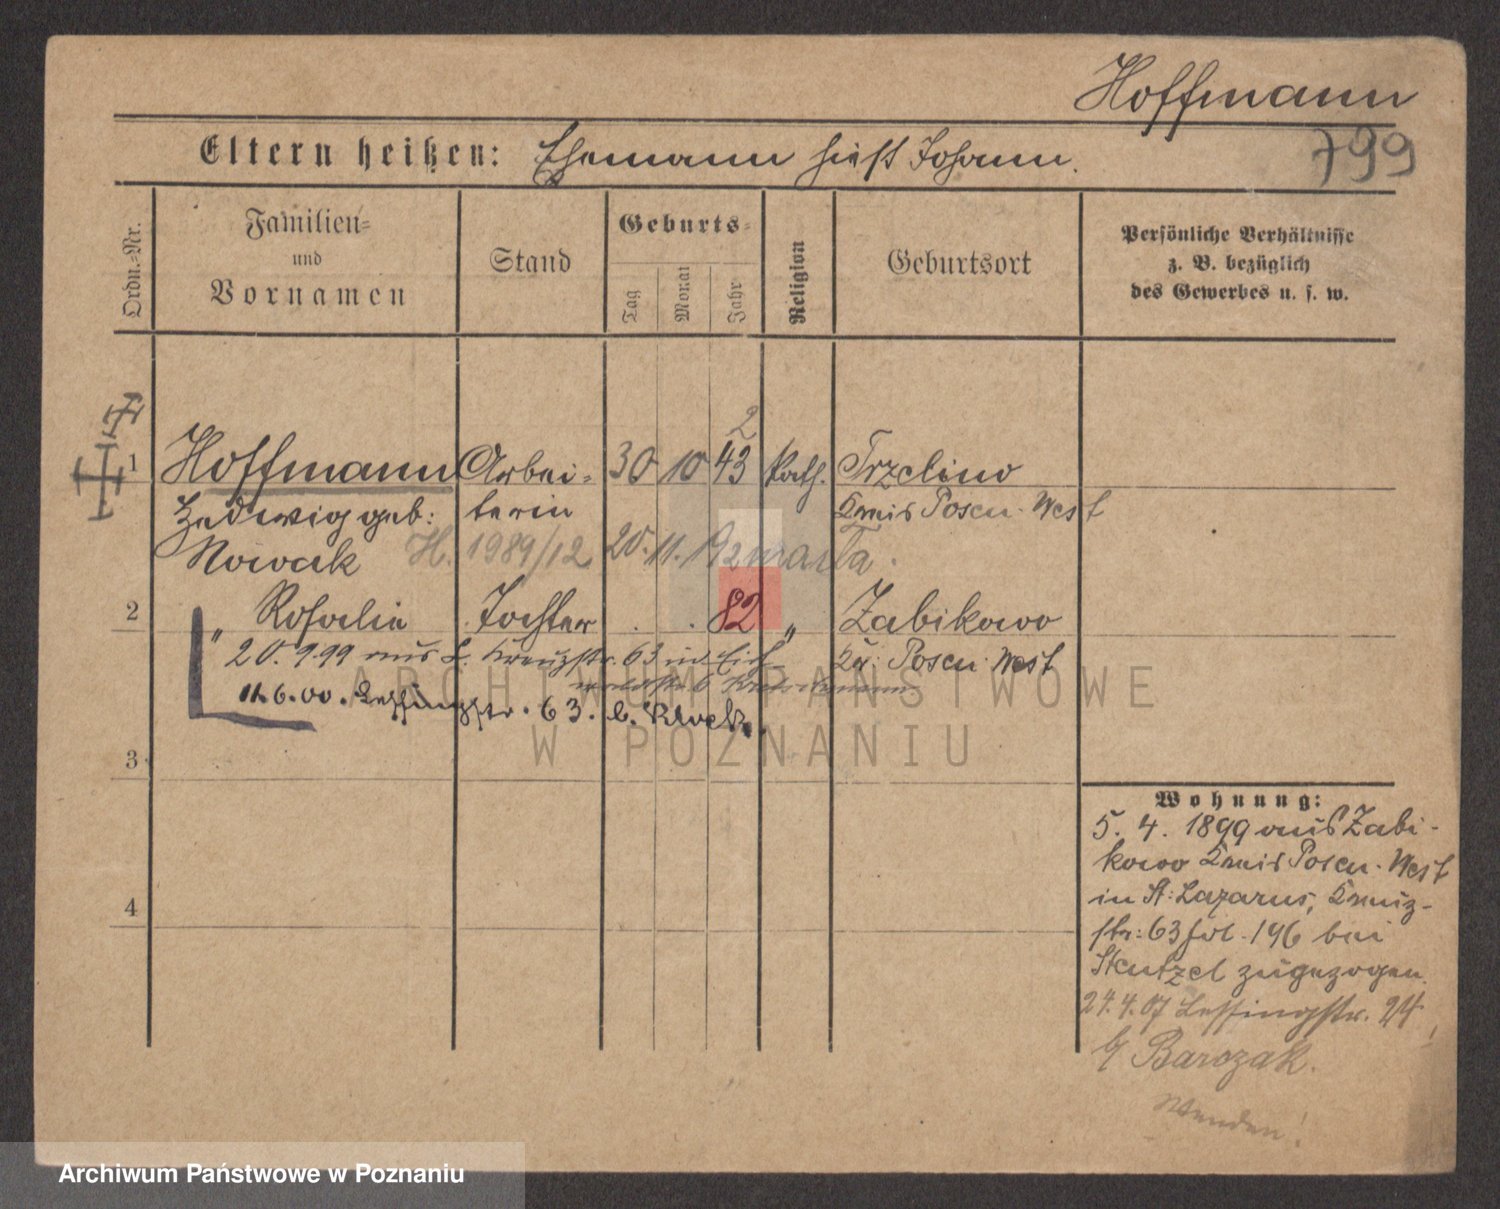 Hoffmann
Eltern heißen: Ehemann hieß Johann.
799
Ordn.-Nr.
Familien-
und
Vornamen
Stand
Geburts-
Tag
Monat
Jahr
Religion
Geburtsort
Persönliche Verhältnisse
z. B. bezüglich
des Gewerbes u. s. w.
2
1 Hoffmann Arbei- 30 10 43 kath. Trzclino
Hedwig geb: terin Kreis Posen-West
Nowak H. 1989/12 20. 11. 12 marta.
2 " Rosalie Tochter . . 82 " Zabikowo
20. 9. 99 aus L. Kreuzstr. 63 Kr. Posen West
11. 6. 00. Lessingstr. 63. b.
3
4
Wohnung:
5. 4. 1899 aus Zabi-
kowo Kreis Posen-West
in St. Lazarus, Kreuz-
str: 63 fol. 196 bei
Stentzel zugezogen.
24. 4. 07 Lessingstr. 24
b/ Barczak.
Wenden!
ARCHIWUM PAŃSTWOWE
W POZNANIU
Archiwum Państwowe w Poznaniu